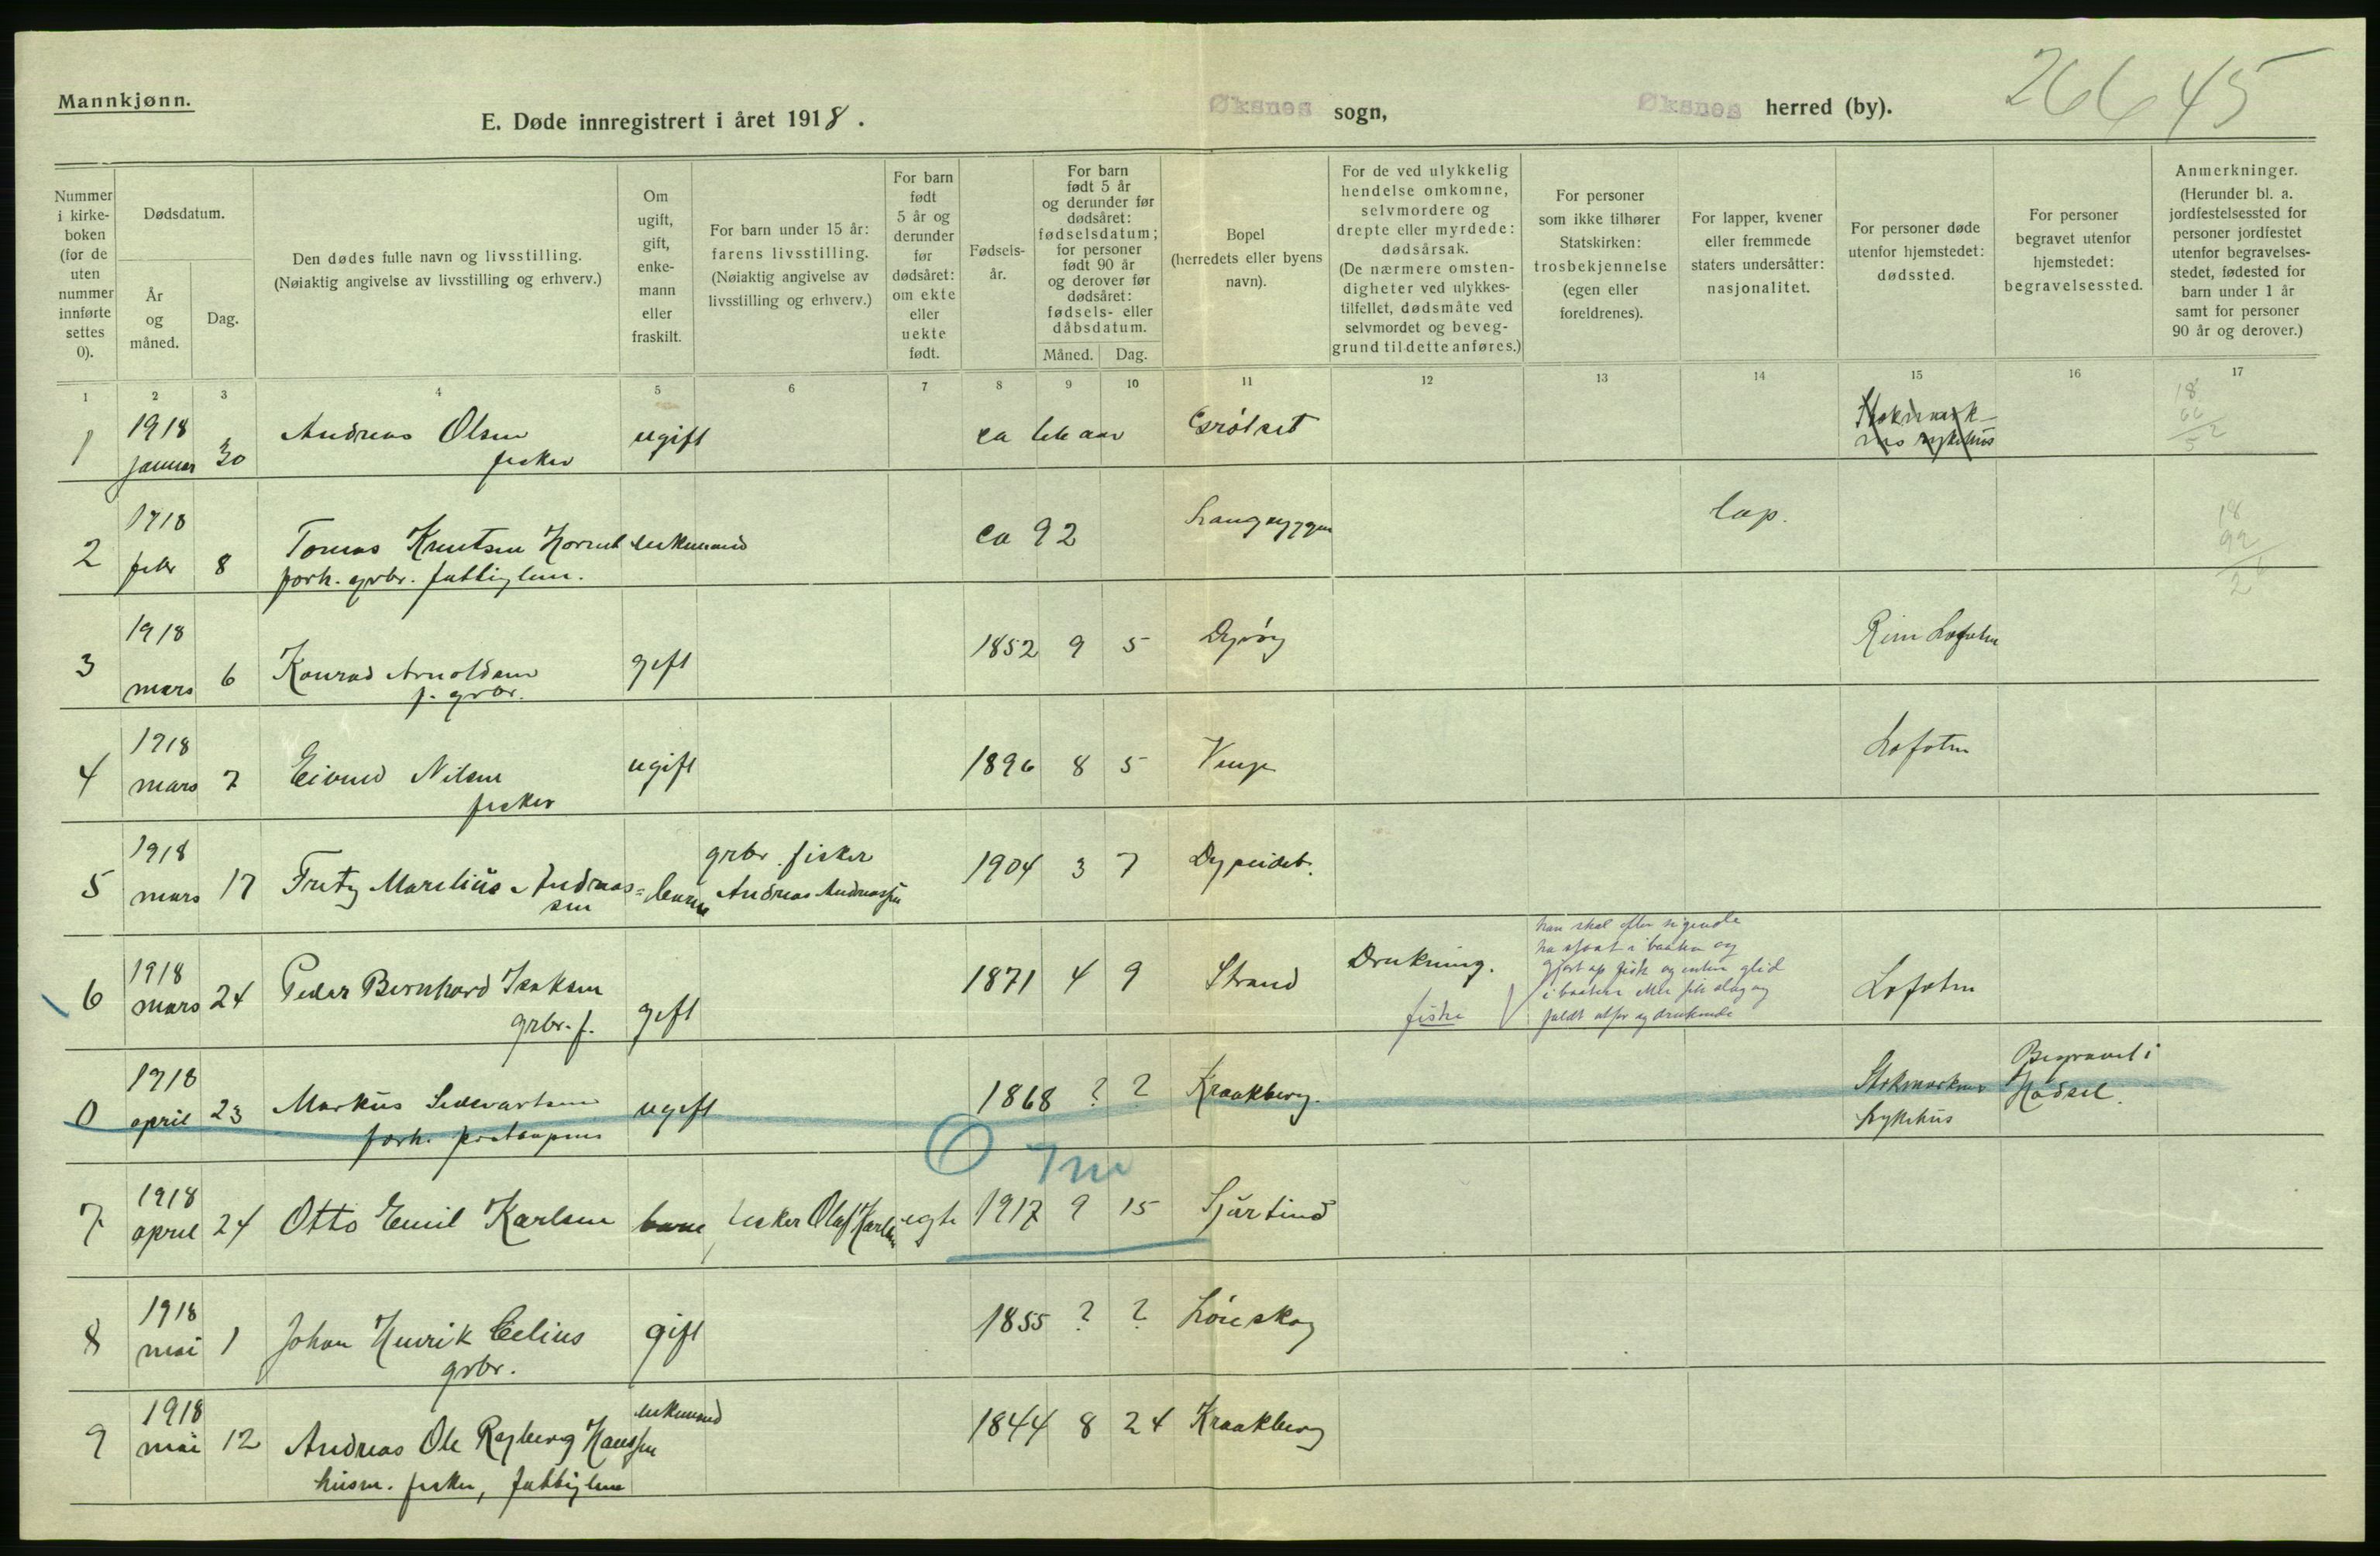 Mannkjønn.
E. Døde innregistrert i året 1918.
Øksnes sogn,
Øksnes herred (by).
266 45
Nummer i kirke-boken (for de uten nummer innførte settes 0).
Dødsdatum.
År og måned.
Dag.
Den dødes fulle navn og livsstilling.
(Nøiaktig angivelse av livsstilling og erhverv.)
Om ugift, gift, enke-mann eller fraskilt.
For barn under 15 år: farens livsstilling.
(Nøiaktig angivelse av livsstilling og erhverv.)
For barn født 5 år og derunder før dødsåret: om ekte eller uekte født.
Fødsels-år.
For barn født 5 år og derunder før dødsåret: fødselsdatum; for personer født 90 år og derover før dødsåret: fødsels- eller dåbsdatum.
Måned.
Dag.
Bopel
(herredets eller byens navn).
For de ved ulykkelig hendelse omkomne, selvmordere og drepte eller myrdede: dødsårsak.
(De nærmere omsten-digheter ved ulykkes-tilfellet, dødsmåte ved selvmordet og beveg-grund til dette anføres.)
For personer som ikke tilhører Statskirken: trosbekjennelse (egen eller foreldrenes).
For lapper, kvener eller fremmede staters undersåtter: nasjonalitet.
For personer døde utenfor hjemstedet: dødssted.
For personer begravet utenfor hjemstedet: begravelsessted.
Anmerkninger.
(Herunder bl. a. jordfestelsessted for personer jordfestet utenfor begravelses-stedet, fødested for barn under 1 år samt for personer 90 år og derover.)
1 2 3 4 5 6 7 8 9 10 11 12 13 14 15 16 17
1 1918 januar 30 Andreas Olsen ugift ca 66 aar
fisker
18
66
52
2 1918 febr 8 Tomas Knutsen enkemand ca 92 Langryggen lap.
forh. grbr. fattiglem.
18
92
26
3 1918 mars 6 Konrad Arnoldsen gift 1852 9 5 Dyrøy Lofoten
f. grbr.
4 1918 mars 7 Eivind Nilsen ugift 1896 8 5 Lofoten
fisker
5 1918 mars 17 Fritz Marelius Andreas= barn grbr. fisker 1904 3 7 Dypeidet.
sen Andreas Andreassen
6 1918 mars 24 Peder Bernhard Isaksen gift 1871 4 9 Strand Drukning. Lofoten
grbr. f.
fiske
han skal efter sigende
ha staat i baaten og
gjort op fisk og enten glid
i baaten eller fik slag og
faldt utfor og druknede
0 1918 april 23 Markus Sedevartsen ugift 1868 ? ? Kraakberg. Stokmarknes Begravet i
forh. sykehus Hadsel.
0 7m
7 1918 april 24 Otto Emil Karlsen barn fisker Olaf Karlsen egte 1917 9 15 Tjurtind
8 1918 mai 1 Johan Henrik Celius gift 1855 ? ? Lønskog
grbr.
9 1918 mai 12 Andreas Ole Hanssen enkemand 1844 8 24 Kraakberg
husm. fisker, fattiglem